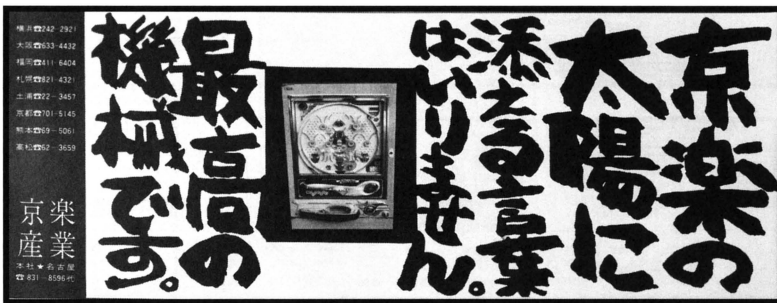 京楽の
太陽に
添える言葉
はいりません。
最高の
機械です。
横浜☎242-2921
大阪☎633-4432
福岡☎411-6404
札幌☎821-4321
土浦☎22-3457
京都☎701-5145
熊本☎69-5061
高松☎62-3659
京楽
産業
本社★名古屋
☎831-8596代